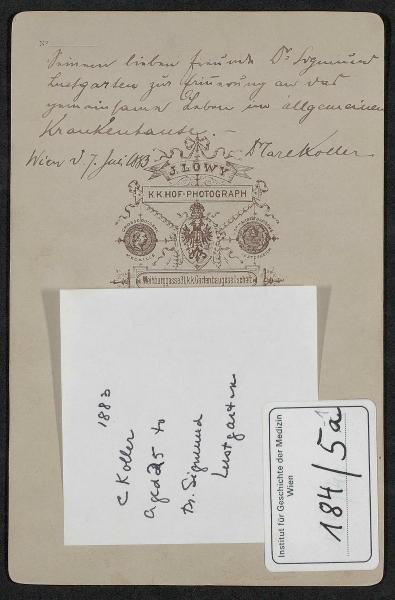 No
Seinem lieben Freunde Dr Sigmund
Lustgarten zur Erinnerung an das
gemeinsame Leben im allgemeinen
Krankenhause. –
Wien d 7. Juli 1883
Dr Carl Koller
J. LÖWY
K.K. HOF-PHOTOGRAPH
Weihburggasse 31, k.k. Gartenbaugesellschaft
1883
C Koller
aged 25 to
Dr. Sigmund
Lustgarten
Institut für Geschichte der Medizin
Wien
184/5a